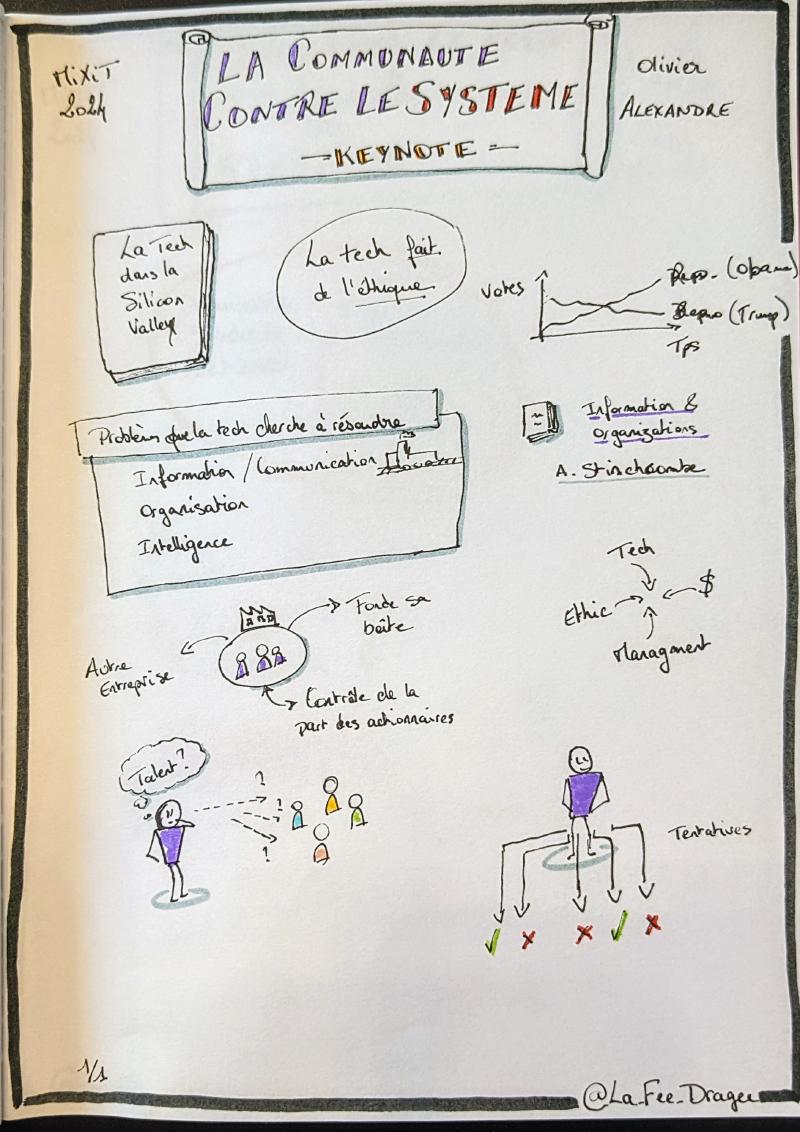 MiXiT
2024
LA COMMUNAUTE
CONTRE LE SYSTEME
— KEYNOTE —
Olivier
ALEXANDRE
La Tech
dans la
Silicon
Valley
La tech fait
de l'éthique
Votes
(Obama)
(Trump)
Tps
Problèmes que la tech cherche à résoudre
Information / Communication
Organisation
Intelligence
Information &
Organizations
A. Stinchcombe
Tech
$
Ethic
Managment
Fonde sa
boîte
Autre
Entreprise
Contrôle de la
part des actionnaires
Talent?
?
?
?
Tentatives
1/1
@La_Fee_Dragee